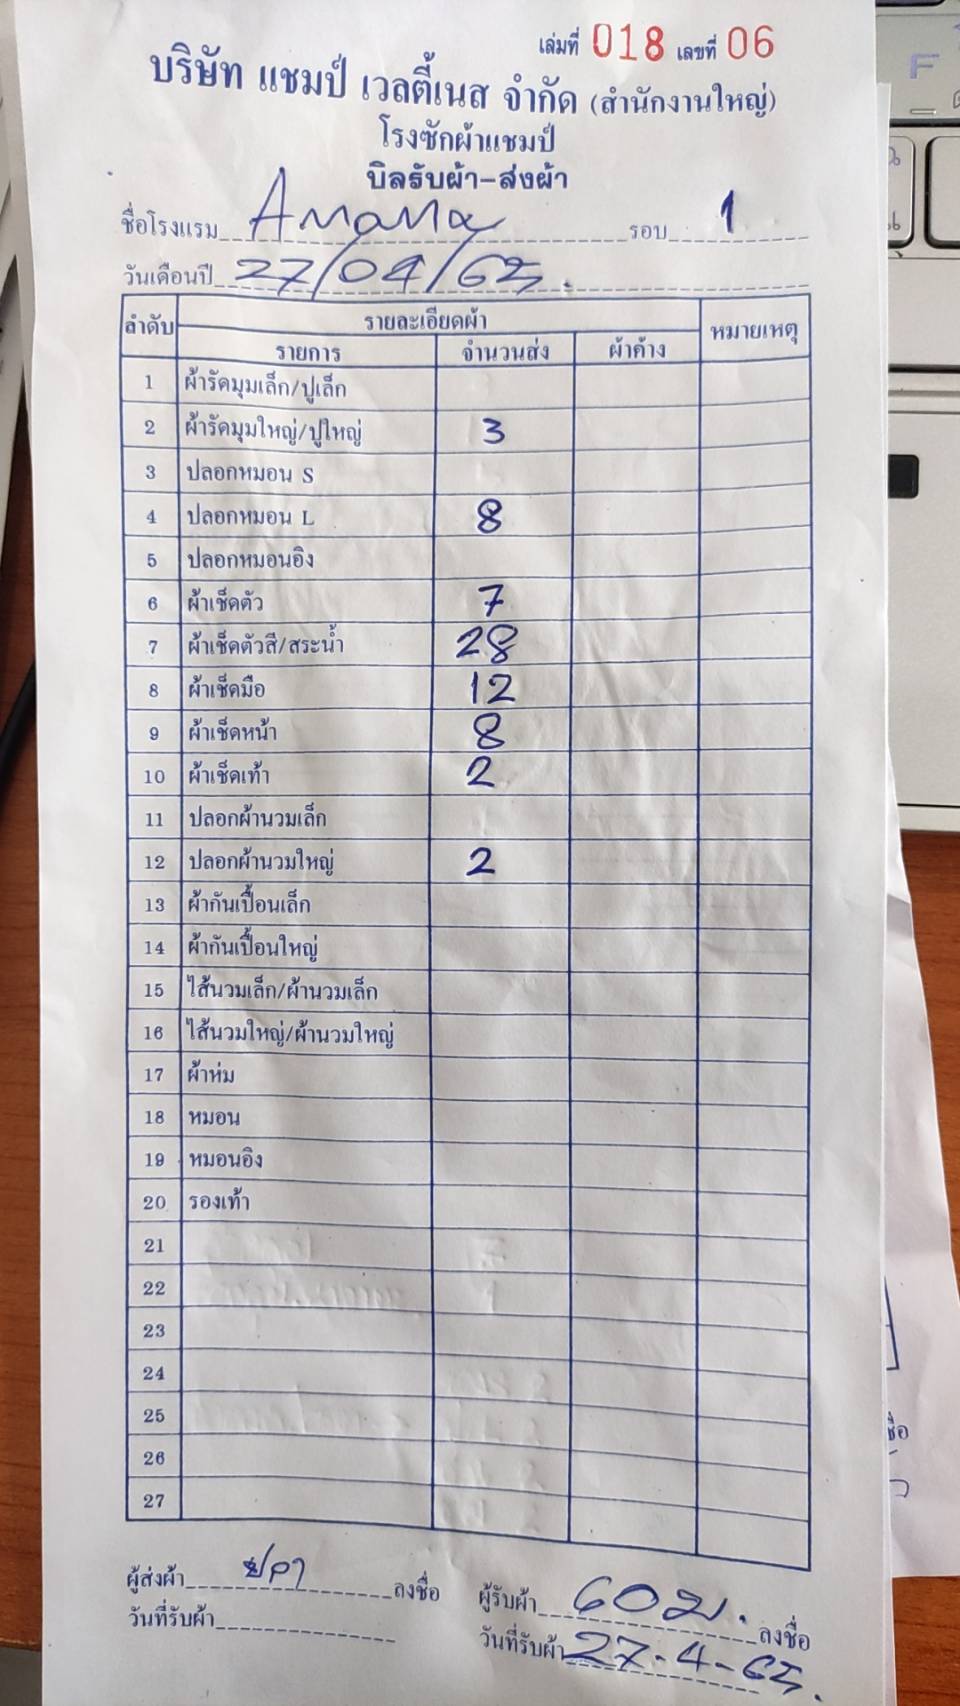 เล่มที่ 018 เลขที่ 06
บริษัท แชมป์ เวลตี้เนส จำกัด (สำนักงานใหญ่)
โรงซักผ้าแชมป์
บิลรับผ้า-ส่งผ้า
ชื่อโรงแรม Amama รอบ 1
วันเดือนปี 27/04/65.
ลำดับ รายละเอียดผ้า หมายเหตุ
รายการ จำนวนส่ง ผ้าค้าง
1 ผ้ารัดมุมเล็ก/ปูเล็ก
2 ผ้ารัดมุมใหญ่/ปูใหญ่ 3
3 ปลอกหมอน S
4 ปลอกหมอน L 8
5 ปลอกหมอนอิง
6 ผ้าเช็ดตัว 7
7 ผ้าเช็ดตัวสี/สระน้ำ 28
8 ผ้าเช็ดมือ 12
9 ผ้าเช็ดหน้า 8
10 ผ้าเช็ดเท้า 2
11 ปลอกผ้านวมเล็ก
12 ปลอกผ้านวมใหญ่ 2
13 ผ้ากันเปื้อนเล็ก
14 ผ้ากันเปื้อนใหญ่
15 ไส้นวมเล็ก/ผ้านวมเล็ก
16 ไส้นวมใหญ่/ผ้านวมใหญ่
17 ผ้าห่ม
18 หมอน
19 หมอนอิง
20 รองเท้า
21
22
23
24
25
26
27
ผู้ส่งผ้า ลงชื่อ ผู้รับผ้า ลงชื่อ
วันที่รับผ้า วันที่รับผ้า 27-4-65.
F
ชื่อ